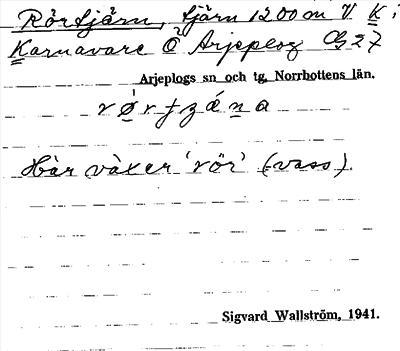 Rörtjärn, tjärn 1200 m V K i
Karnavare Ö Arjeplog 27
Arjeplogs sn och tg, Norrbottens län.
Här växer 'rör' (vass).
Sigvard Wallström, 1941.